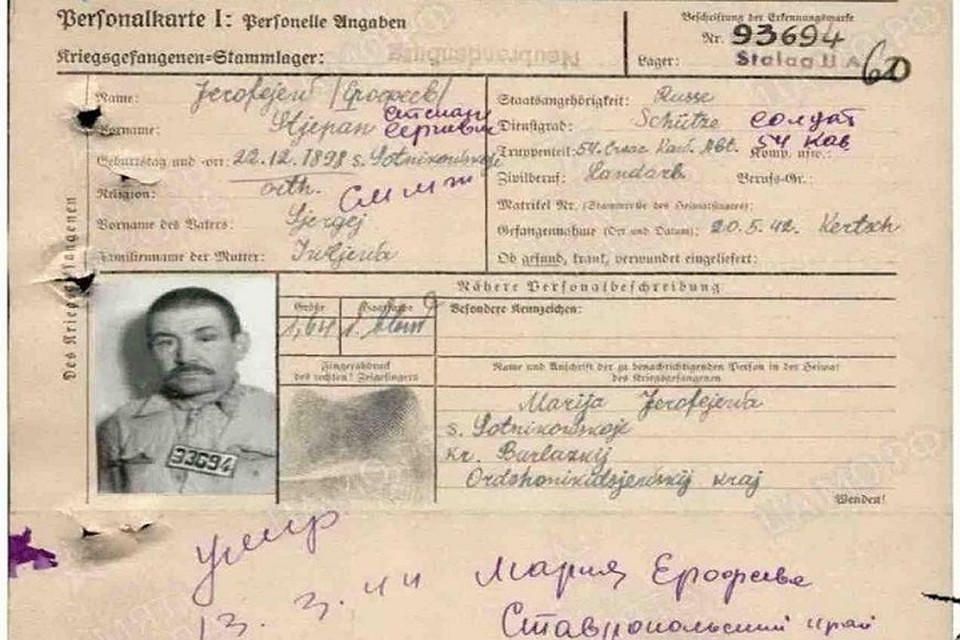 Personalkarte I: Personelle Angaben
Kriegsgefangenen=Stammlager: Neubrandenburg
Beschriftung der Erkennungsmarke
Nr. 93694
Lager: Stalag II A 60
Name: Jerofejew (Ерофеев)
Vorname: Stjepan Степан
Сергеевич
Geburtstag und -ort: 22.12.1898 s. Sotnikowskoje
Religion: orth.
Vorname des Vaters: Sjergej
Familienname der Mutter:
Staatsangehörigkeit: Russe
Dienstgrad: Schütze солдат
Truppenteil: 54. Kav. Abt. Komp. usw.: 54 кав
Zivilberuf: Landarb. Berufs-Gr.:
Matrikel Nr. (Stammrolle des Heimatstaates):
Gefangennahme (Ort und Datum): 20.5.42. Kertsch
Ob gesund, krank, verwundet eingeliefert:
Des Kriegsgefangenen
93694
Nähere Personalbeschreibung
Größe Haarfarbe Besondere Kennzeichen:
1,64
Fingerabdruck
des rechten! Zeigefingers
Name und Anschrift der zu benachrichtigenden Person in der Heimat
des Kriegsgefangenen
Marija Jerofejewa
s. Sotnikowskoje
kr. Burlazkij
Ordshonikidsjewskij kraj
Wenden!
умер
13.3.44 Мария Ерофеева
Ставропольский край